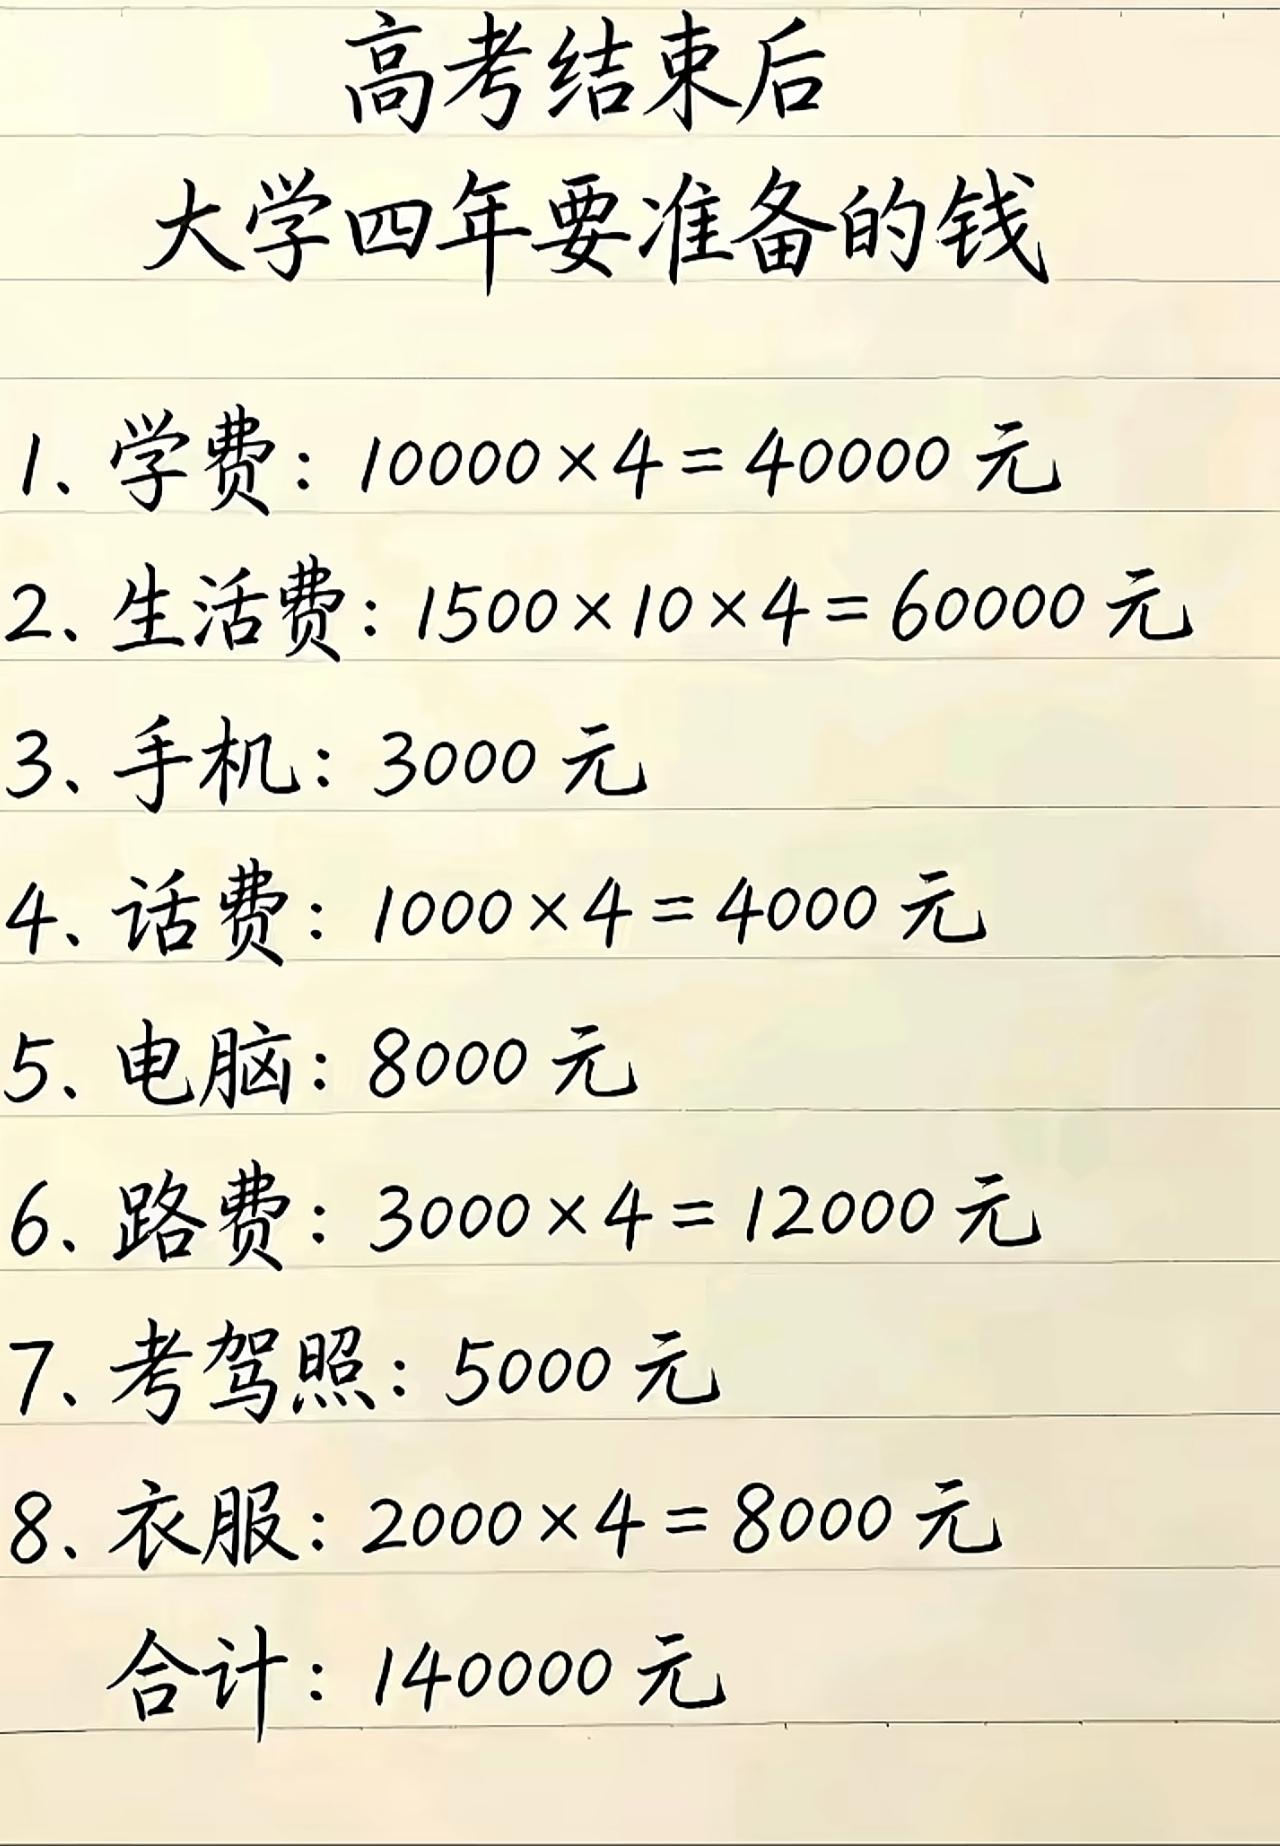 高考结束后
大学四年要准备的钱
1、学费：10000×4=40000元
2、生活费：1500×10×4=60000元
3、手机：3000元
4、话费：1000×4=4000元
5、电脑：8000元
6、路费：3000×4=12000元
7、考驾照：5000元
8、衣服：2000×4=8000元
合计：140000元